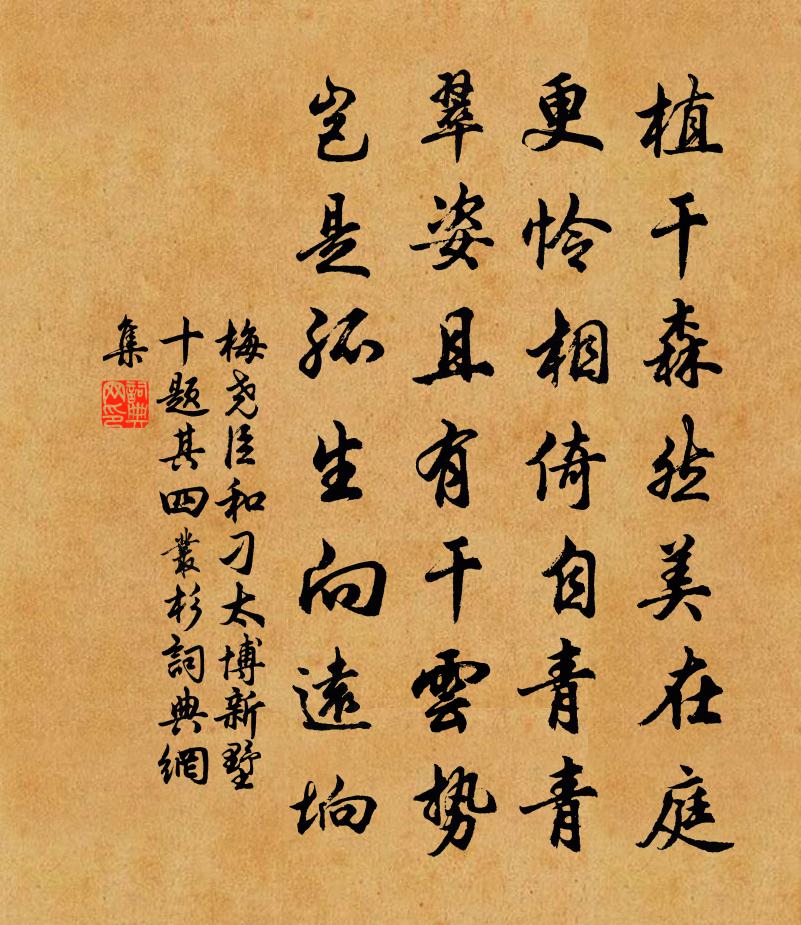 植干森然美在庭
更怜相倚自青青
翠姿且有干雲势
岂是孤生向遠坰
梅尧臣和刁太博新墅
十题其四叢杉詞典網
集
詞典
网印